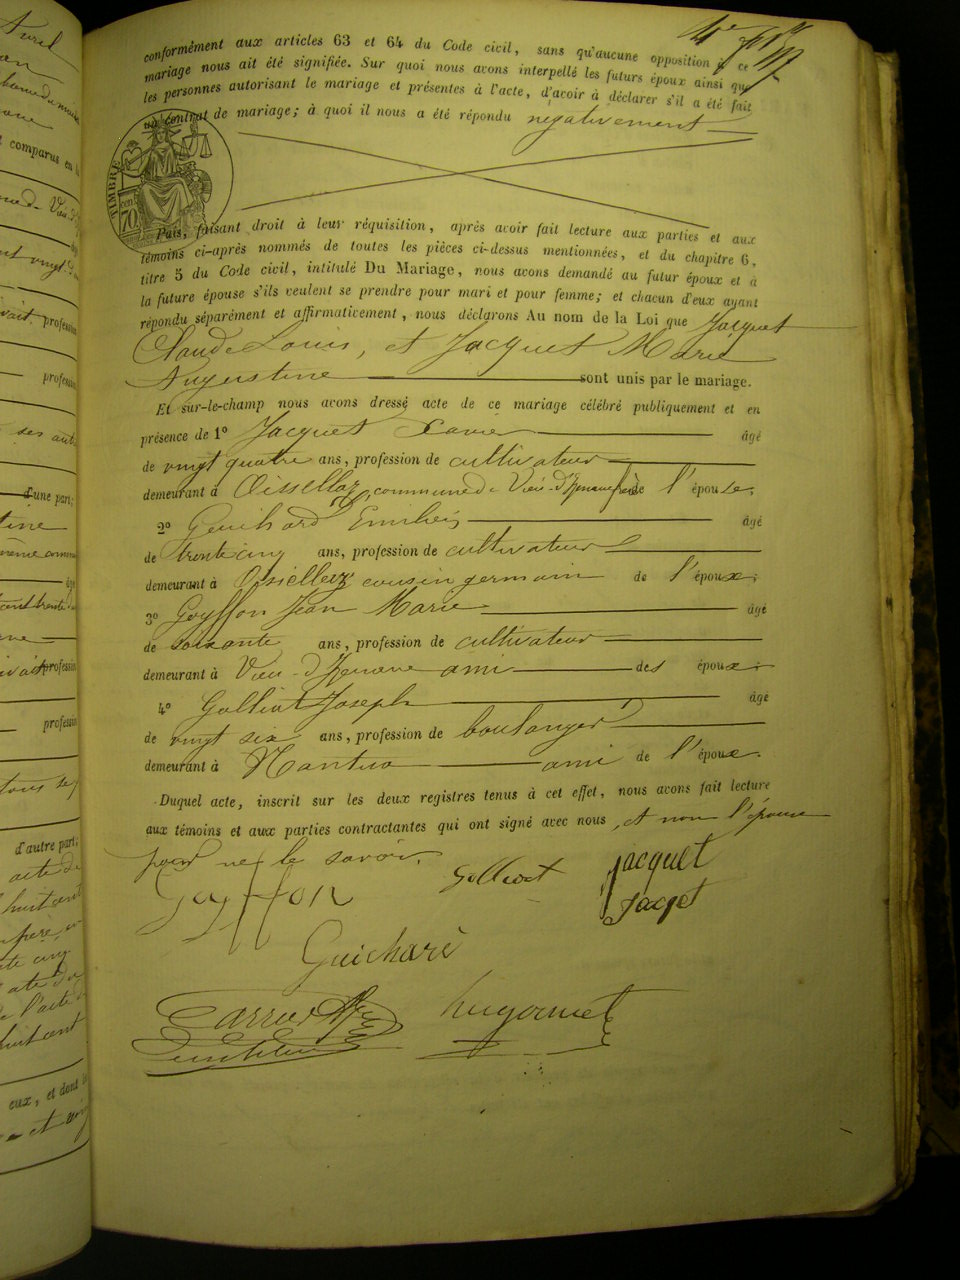 conformément aux articles 63 et 64 du Code civil, sans qu'aucune opposition à ce
mariage nous ait été signifiée. Sur quoi nous avons interpellé les futurs époux ainsi que
les personnes autorisant le mariage et présentes à l'acte, d'avoir à déclarer s'il a été fait
un contrat de mariage; à quoi il nous a été répondu négativement
TIMBRE
70
Puis, faisant droit à leur réquisition, après avoir fait lecture aux parties et aux
témoins ci-après nommés de toutes les pièces ci-dessus mentionnées, et du chapitre 6,
titre 5 du Code civil, intitulé Du Mariage, nous avons demandé au futur époux et à
la future épouse s'ils veulent se prendre pour mari et pour femme; et chacun d'eux ayant
répondu séparément et affirmativement, nous déclarons Au nom de la Loi que Jacquet
Claude Louis, et Jacquet Marie
Augustine sont unis par le mariage.
Et sur-le-champ nous avons dressé acte de ce mariage célébré publiquement et en
présence de 1º Jacquet Xavier âgé
de vingt quatre ans, profession de cultivateur
demeurant à Oissellaz, commune de Vieu-d'Izenave frère de l'épouse,
2º Guichard âgé
de trente cinq ans, profession de cultivateur
demeurant à Oissellaz cousin germain de l'époux;
3º Goyffon Jean Marie âgé
de soixante ans, profession de cultivateur
demeurant à Vieu-d'Izenave ami des époux;
4º Golliat Joseph âgé
de vingt six ans, profession de boulanger
demeurant à Nantua ami de l'époux.
Duquel acte, inscrit sur les deux registres tenus à cet effet, nous avons fait lecture
aux témoins et aux parties contractantes qui ont signé avec nous, et non l'épouse
pour ne le savoir.
Goyffon Golliat Jacquet
Jaxqet
Guichard